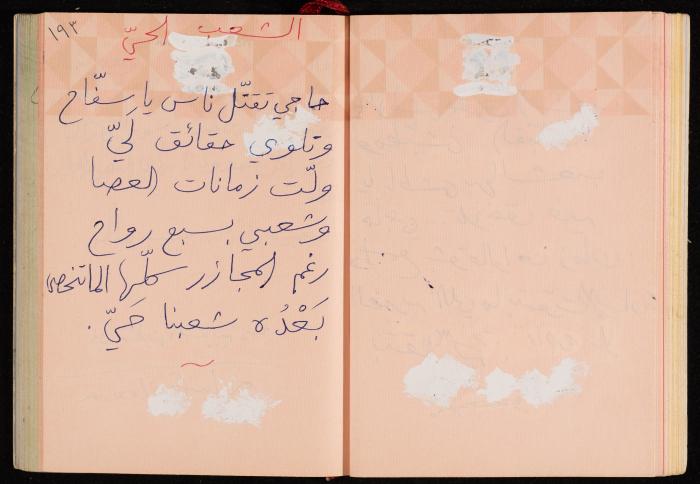 ١٩٣
الشعب الحيّ
حاجي تقتّل ناس يا سفّاح
وتلوي حقائق ليّ
ولّت زمانات العصا
وشعبي بسبع رواح
رغم المجازر كلّها الماتنحصى
بَعْدُه شعبنا حَيّ.